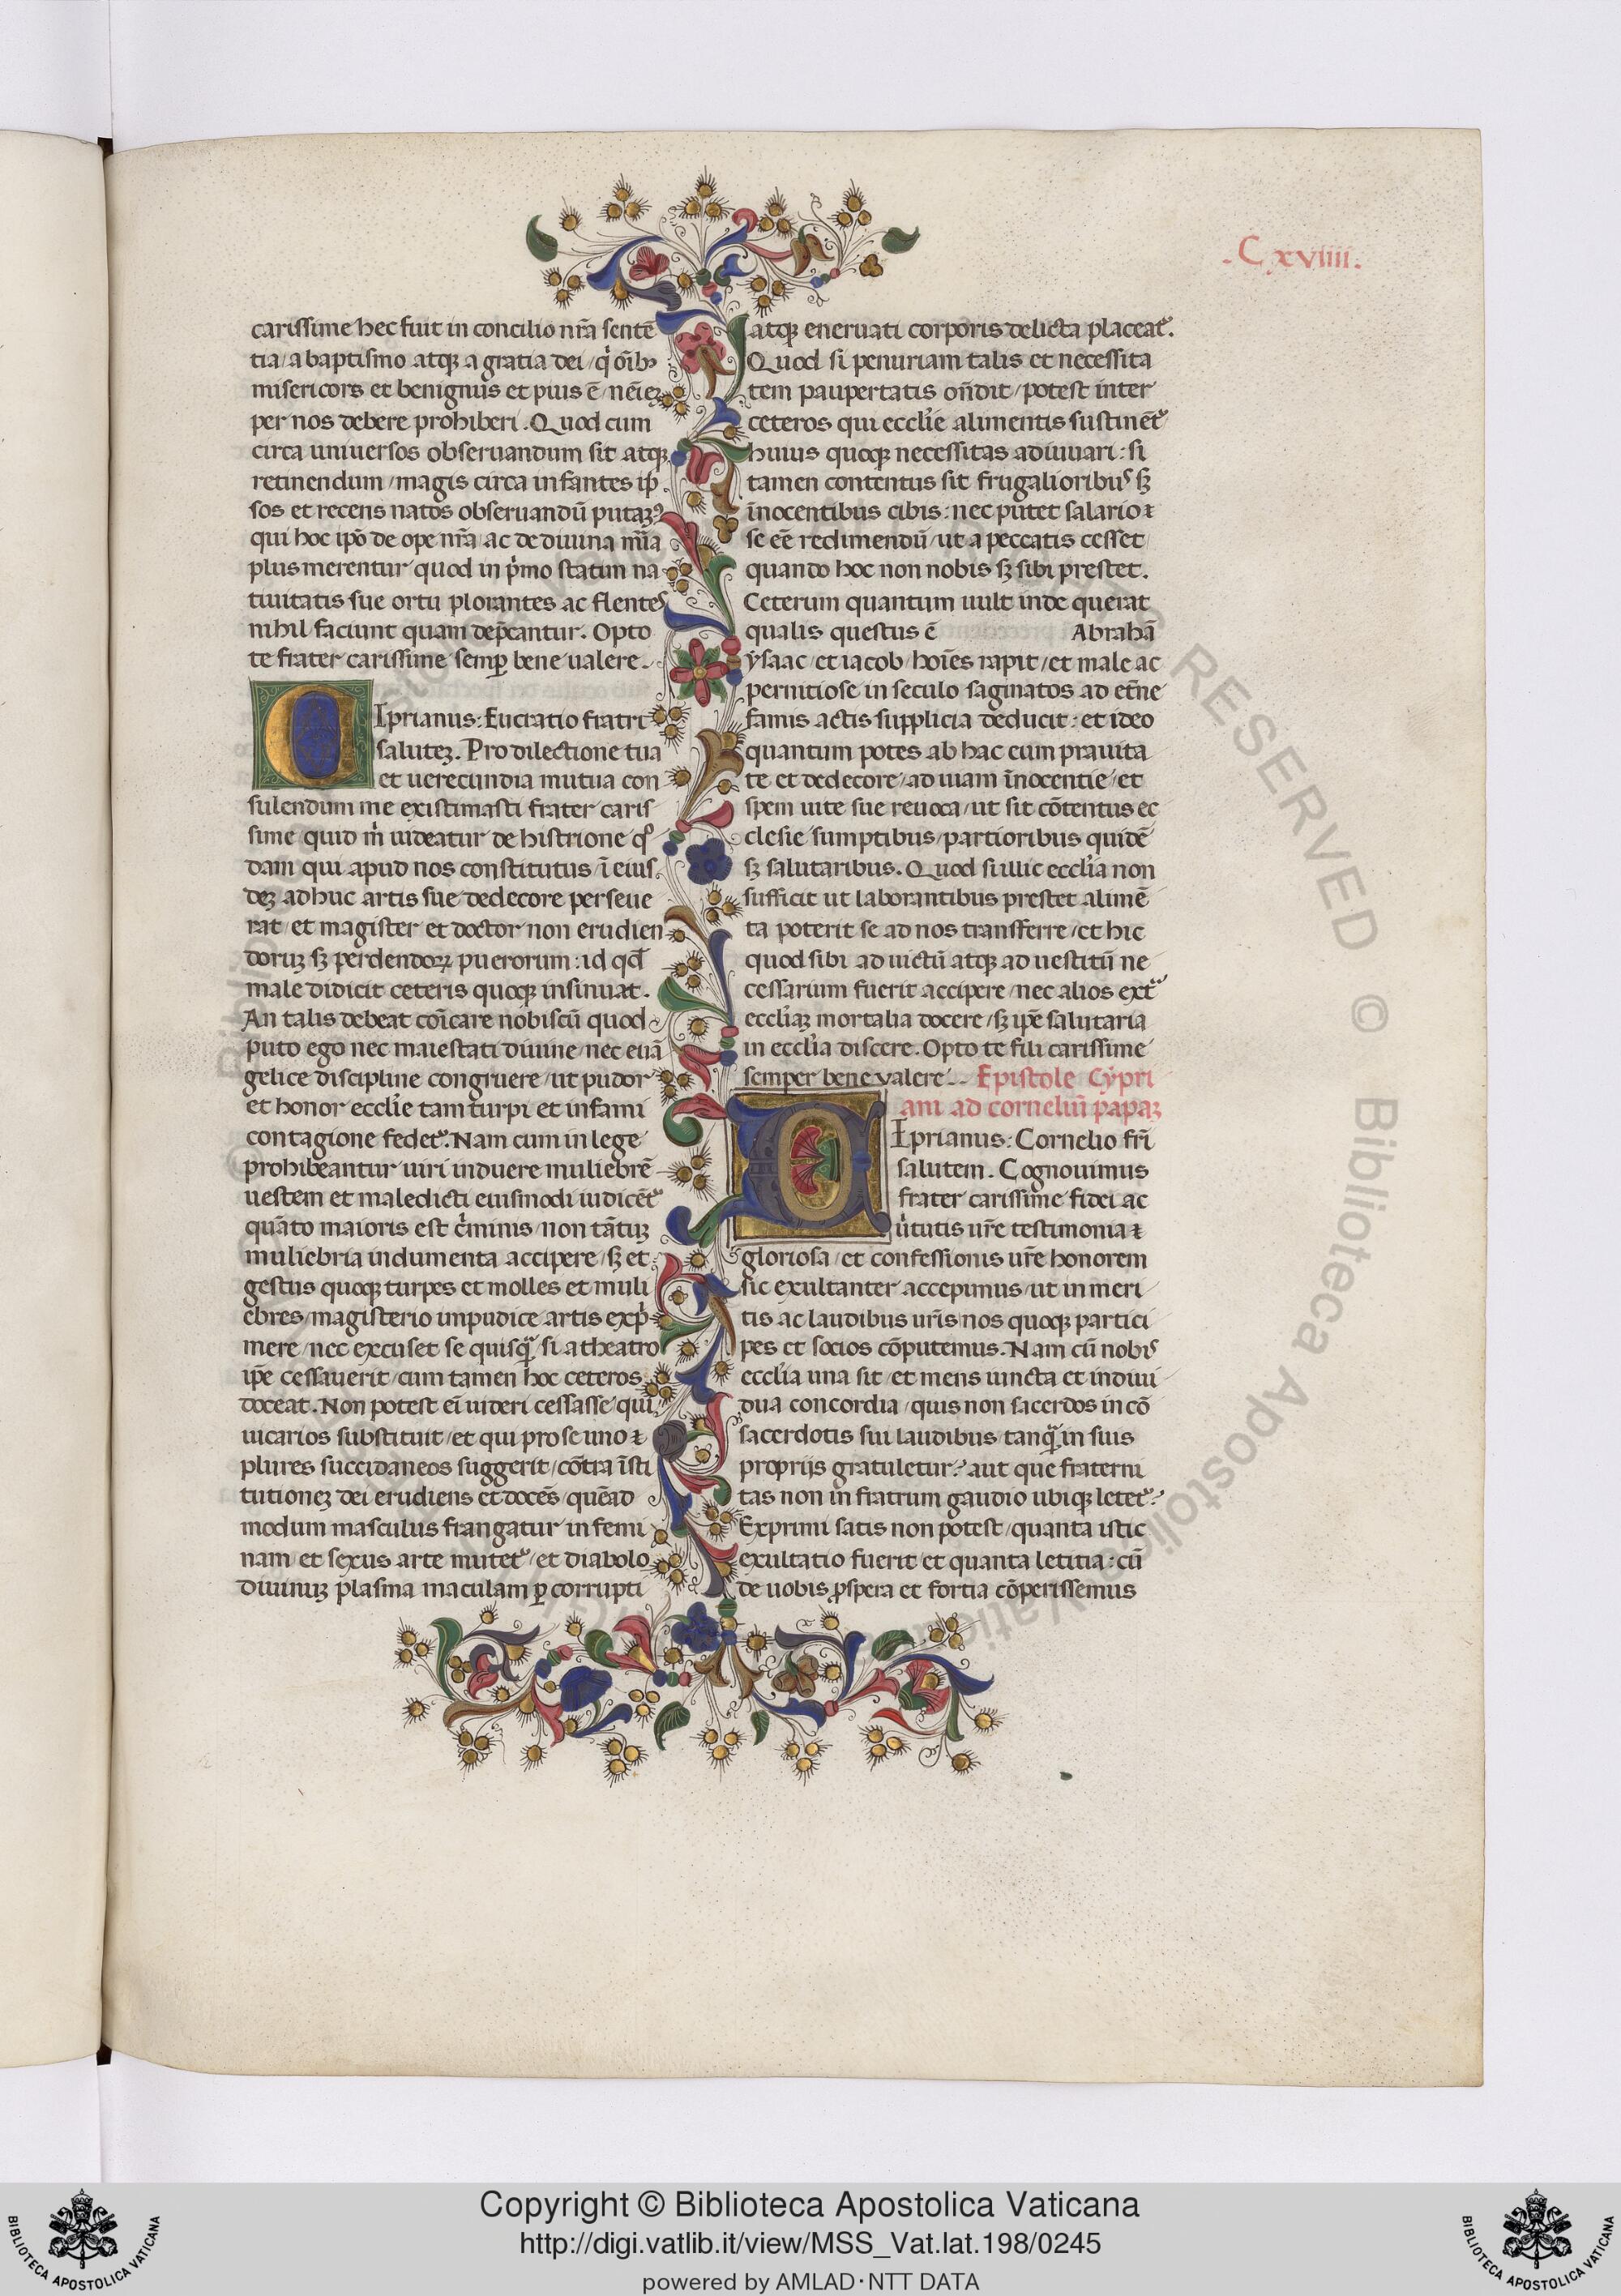 .Cxviiii.
carissime hec fuit in concilio nr̃a sentẽ
tia / a baptismo atqꝫ a gratia dei / q̇ oĩbꝫ
misericors et benignus et pius ẽ / nẽieꝫ
per nos debere prohiberi. Quod cum
circa universos observandum sit atqꝫ
retinendum / magis circa infantes ip̃
sos et recens natos observandũ putaꝫꝰ
qui hoc ip̃o de ope nr̃a ac de divina mĩa
plus merentur quod in ṗmo statim na
tivitatis sue ortu plorantes ac flentes
nihil faciunt quam dep̃cantur. Opto
te frater carissime semꝑ bene valere.
CIprianus: Eucratio fratri
saluteꝫ. Pro dilectione tua
et verecundia mutua con
sulendum me existimasti frater caris
sime quid ṁ videatur de histrione qͦ
dam qui apud nos constitutus ĩ eius
deꝫ adhuc artis sue dedecore perseve
rat / et magister et doctor non erudien
doruꝫ sꝫ perdendoꝝ puerorum: id qd̃
male didicit ceteris quoqꝫ insinuat.
An talis debeat cõicare nobiscũ quod
puto ego nec maiestati divine / nec evã
gelice discipline congruere / ut pudor
et honor eccl̃ie tam turpi et infami
contagione fedetᷣ. Nam cum in lege
prohibeantur viri induere muliebrẽ
vestem et maledicti eiusmodi iudicẽtᷣ
quãto maioris est c̓minis / non tãtuꝫ
muliebria indumenta accipere / sꝫ et
gestus quoqꝫ turpes et molles et muli
ebres / magisterio impudice artis exp̓
mere / nec excuset se quisq̃ si a theatro
ip̃e cessaverit / cum tamen hoc ceteros
doceat. Non potest eĩ videri cessasse / qui
vicarios substituit / et qui pro se uno ⁊
plures succidaneos suggerit / cõtra ĩsti
tutioneꝫ dei erudiens et docẽs / quẽad
modum masculus frangatur in femi
nam / et sexus arte mutetᷣ / et diabolo
divinuꝫ plasma maculam ꝑ corrupti
atqꝫ enervati corporis delicta placeatᷣ.
Quod si penuriam talis et necessita
tem paupertatis oñdit / potest inter
ceteros qui eccl̃ie alimentis sustinẽtᷣ
huius quoqꝫ necessitas adiuvari: si
tamen contentus sit frugalioribus sꝫ
ĩnocentibus cibis: nec putet salario ⁊
se eẽ redimendũ / ut a peccatis cesset
quando hoc non nobis sꝫ sibi prestet.
Ceterum quantum vult inde querat
qualis questus ẽ Abrahã
ẏsaac / et iacob / hoĩes rapit / et male ac
pernitiose in seculo saginatos ad etr̃ne
famis actis supplicia deducit: et ideo
quantum potes ab hac eum pravita
te et dedecore / ad viam ĩnocentie / et
spem vite sue revoca / ut sit cõtentus ec
clesie sumptibus / partioribus quidẽ
sꝫ salutaribus. Quod si illic eccl̃ia non
sufficit ut laborantibus prestet alimẽ
ta poterit se ad nos transferre / et hic
quod sibi ad victũ atqꝫ ad vestitũ ne
cessarium fuerit accipere / nec alios extᷓ
eccl̃iaꝫ mortalia docere / sꝫ ip̃e salutaria
in eccl̃ia discere. Opto te fili carissime
semper bene valere.. Epistole Cẏpri
ani ad corneliũ papaꝫ
CIprianus: Cornelio fr̃i
salutem. Cognovimus
frater carissime fidei ac
v̓tutis vr̃e testimonia ⁊
gloriosa / et confessionis vr̃e honorem
sic exultanter accepimus / ut in meri
tis ac laudibus vr̃is nos quoqꝫ partici
pes et socios cõputemus. Nam cũ nobis
eccl̃ia una sit / et mens iuncta et indivi
dua concordia / quis non sacerdos in cõ
sacerdotis sui laudibus / tanq̃ in suis
proprijs gratuletur? aut que fraterni
tas non in fratrum gaudio ubiqꝫ letetᷣ?
Exprimi satis non potest / quanta istic
exultatio fuerit / et quanta letitia: cũ
de vobis ꝓspera et fortia cõperissemus
Copyright © Biblioteca Apostolica Vaticana
http://digi.vatlib.it/view/MSS_Vat.lat.198/0245
powered by AMLAD·NTT DATA
BIBLIOTECA APOSTOLICA VATICANA
BIBLIOTECA APOSTOLICA VATICANA